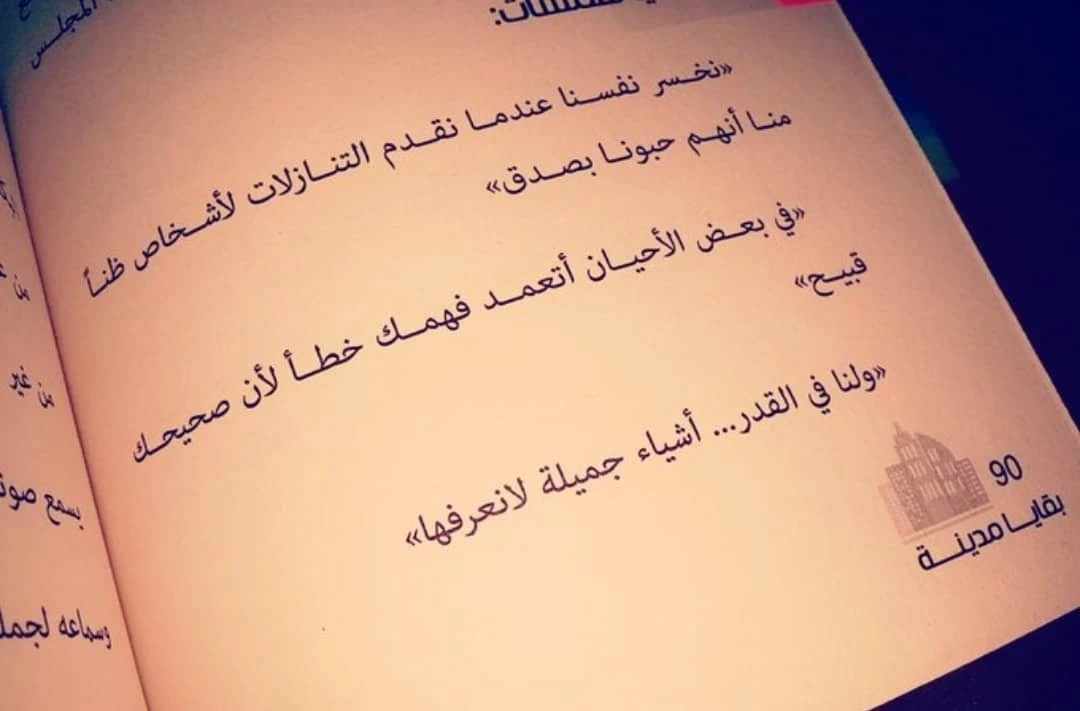 «نخسر نفسنا عندما نقدم التنازلات لأشخاص ظناً
منا أنهم حبونا بصدق»
«في بعض الأحيان أتعمد فهمك خطأ لأن صحيحك
قبيح»
«ولنا في القدر... أشياء جميلة لانعرفها»
90
بقايا مدينة
المجلس
من غير
يسمع
وسماعه